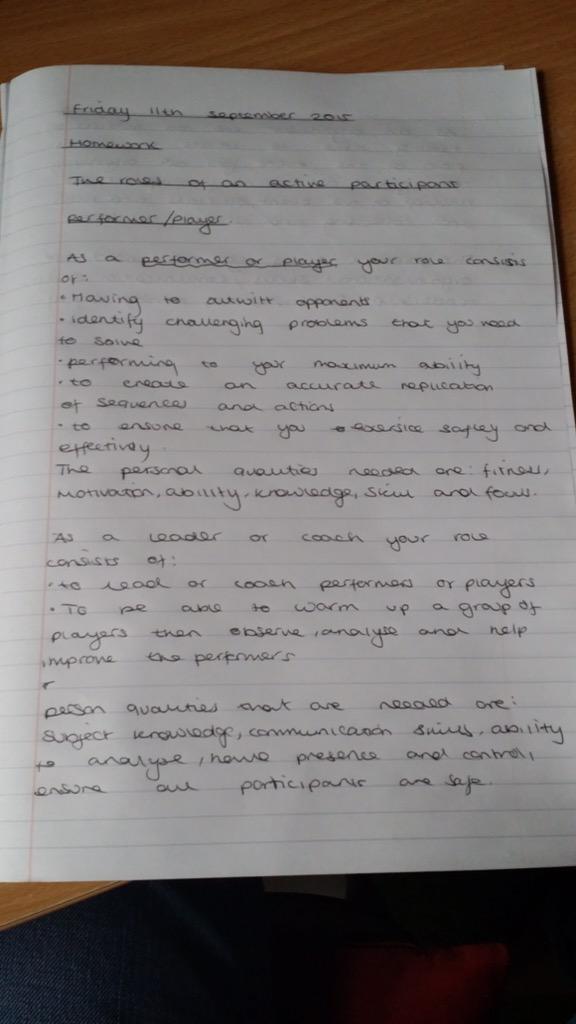 Friday 11th September 2015
Homework
The roles of an active participant
performer/player.
As a performer or player your role consists
of:
• Having to outwitt opponents
• identify challenging problems that you need
to solve
• performing to your maximum ability
• to create an accurate replication
of sequences and actions
• to ensure that you exersice safley and
effectively.
The personal qualities needed are: fitness,
motivation, ability, knowledge, skill and focus.
As a leader or coach your role
consists of:
• to lead or coach performers or players
• To be able to warm up a group of
players then observe, analyse and help
improve the performers
r
person qualities that are needed are:
subject knowledge, communication skills, ability
to analyse, have presence and control,
ensure all participants are safe.